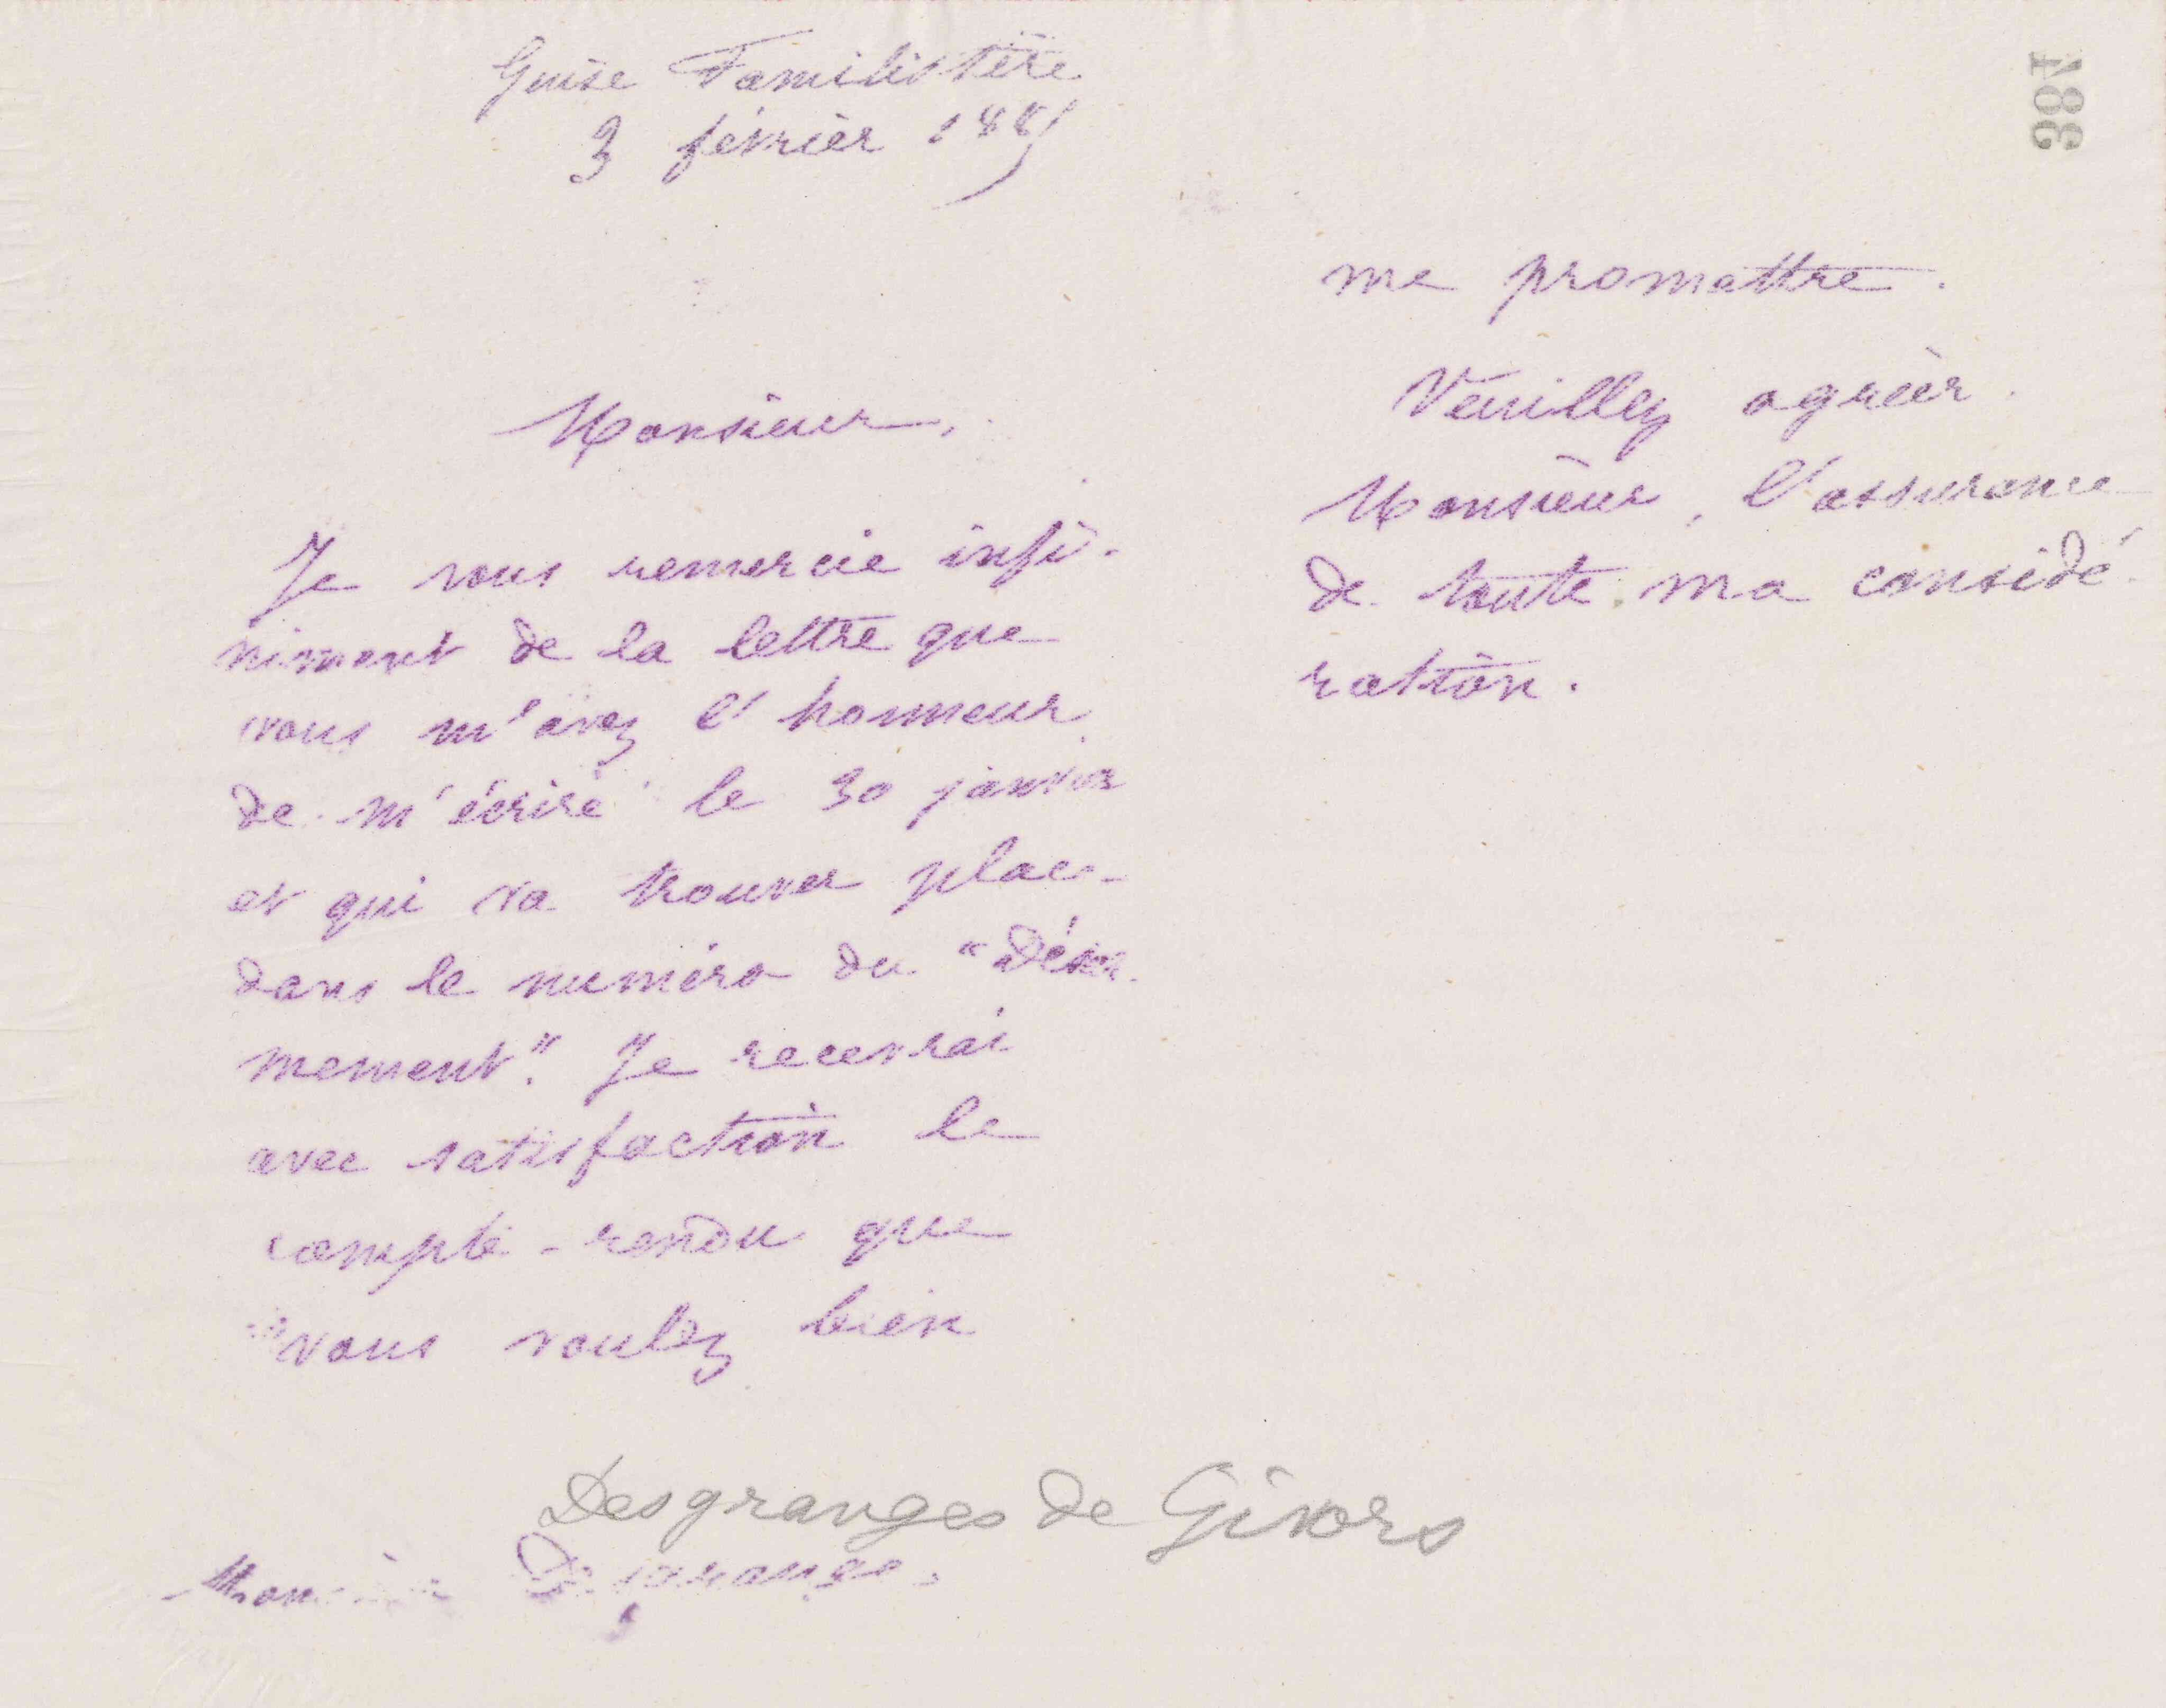 384
Guise Familistère
3 février 1887
Monsieur,
Je vous remercie infi-
niment de la lettre que
vous m'avez l'honneur
de m'écrire le 30 janvier
et qui va trouver place
dans le numéro du "Désar-
mement". Je recevrai
avec satisfaction le
compte-rendu que
vous voulez bien
me promettre.
Veuillez agréer
Monsieur, l'assurance
de toute ma considé-
ration.
Desgranges de Givors
Monsieur Desgranges